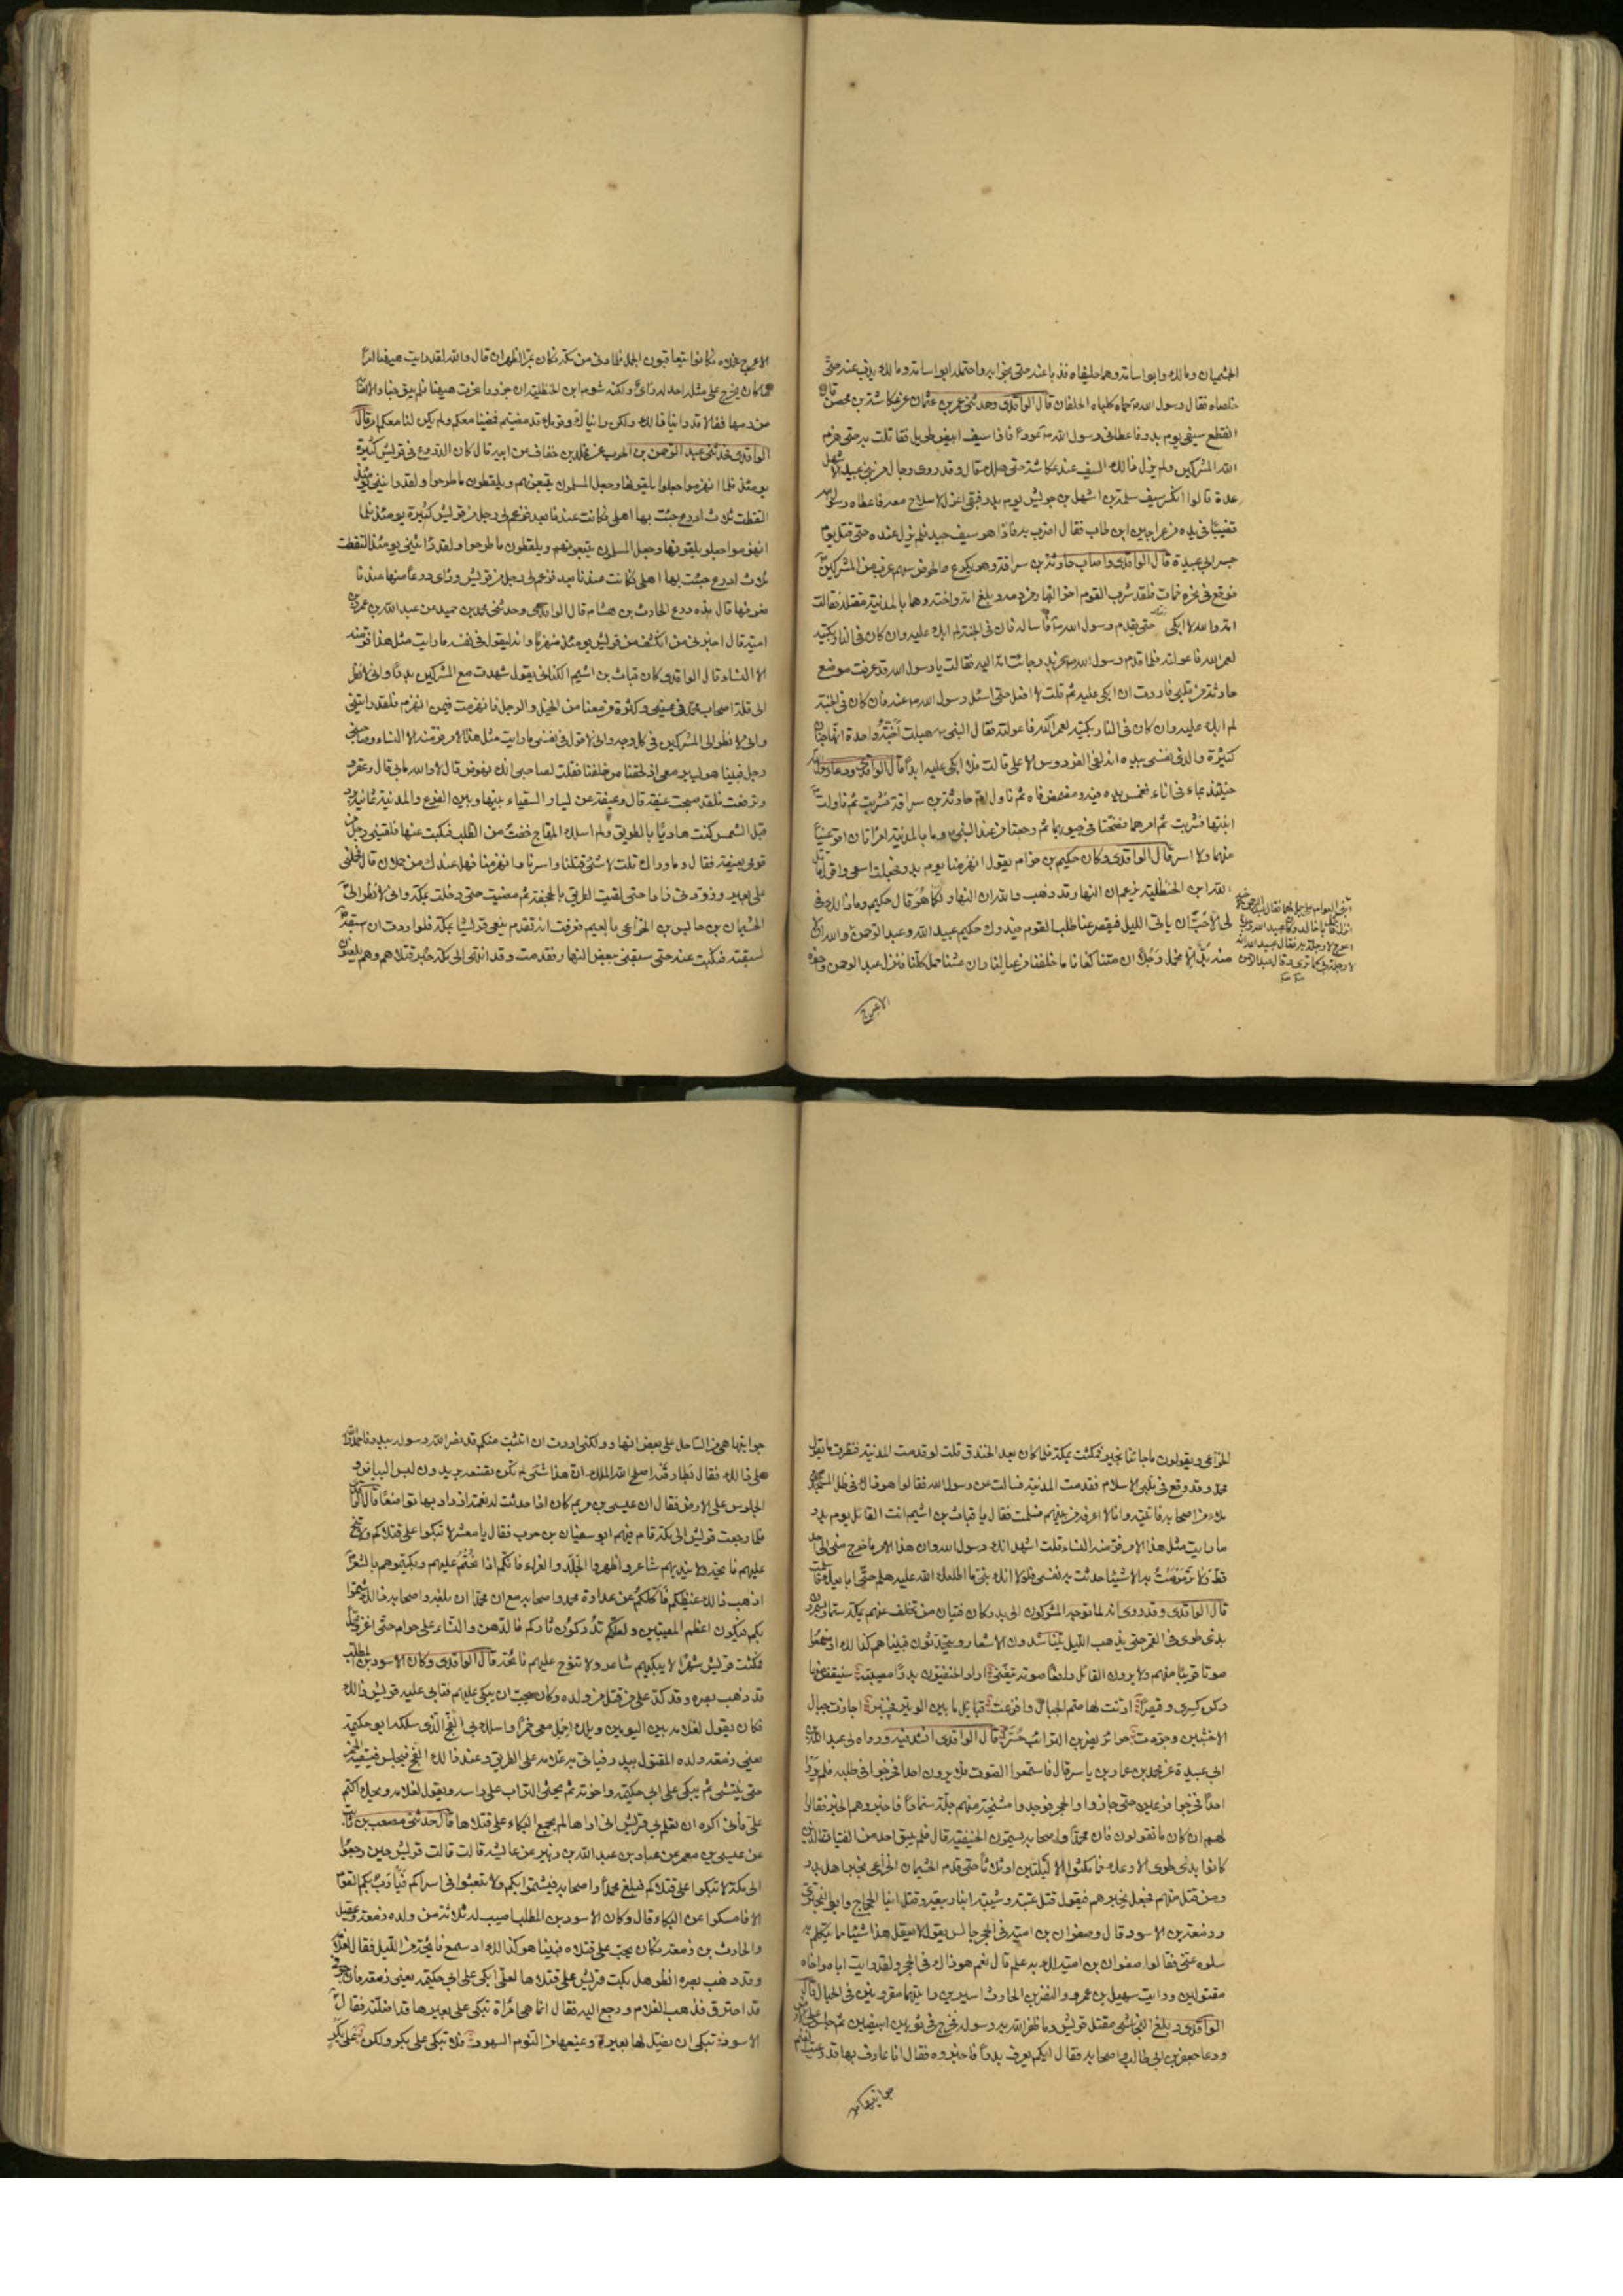 الجشميان ومالك وابو اسامة وهما حليفاه فذبا عنه حتى نجوا به واحتمله ابو اسامة ومالك يذب عنه حتى
خلصاه فقال رسول الله حماه كلباه الحليفان قال الواقدى وحدثنى عمر بن عثمان عن عكاشة بن محصن قال
انقطع سيفى يوم بدر فاعطانى رسول الله عودا فاذا سيف ابيض طويل فقاتلت به حتى هزم
الله المشركين ولم يزل ذالك السيف عند عكاشة حتى هلك قال وقد روى رجال من بنى عبد الاشهل
عدة قالوا انكسر سيف سلمة بن اشهل بن حريش يوم بدر فبقى اعزل لا سلاح معه فاعطاه رسول الله
قضيبا فى يده من عراجين ابن طاب فقال اضرب به فاذا هو سيف جيد فلم يزل عنده حتى قتل يوم
جسر ابى عبيدة قال الواقدى واصاب حارثة بن سراقة وهو يكرع فى الحوض سهم غرب من المشركين
فوقع فى نحره فمات فلقد شرب القوم اخر النهار من دمه وبلغ امه واخته وهما بالمدينة مقتله فقالت
امه والله لا ابكى حتى يقدم رسول الله فاساله فان كان فى الجنة لم ابك عليه وان كان فى النار بكيته
لعمر الله فاعولته فلما قدم رسول الله من بدر جائت امه اليه فقالت يا رسول الله قد عرفت موضع
حارثة من قلبى فاردت ان ابكى عليه ثم قلت لا افعل حتى اسئل رسول الله عنه فان كان فى الجنة
لم ابك عليه وان كان فى النار بكيته لعمر الله فاعولته فقال النبى هبلت أجنة واحدة انها جنان
كثيرة والذى نفسى بيده انه لفى الفردوس الاعلى قالت فلا ابكى عليه ابدا قال الواقدى ودعا رسول الله
حينئذ بماء فى اناء فغمس يده فيه ومضمض فاه ثم ناول ام حارثة بن سراقة فشربت ثم ناولت
ابنتها فشربت ثم امرهما فنضحتا فى جيوبهما ثم رجعتا من عند النبى وما بالمدينة امراتان اقر عينا
منهما ولا اسر قال الواقدى وكان حكيم بن حزام يقول انهزمنا يوم بدر فجعلت اسعى واقول قاتل
الله ابن الحنظلية يزعم ان النهار قد ذهب والله ان النهار لكما هو قال حكيم وما ذالك بى
الا حبا ان ياتى الليل فيقصر عنا طلب القوم فيدرك حكيم عبيد الله وعبد الرحمن
الاعرج
الاعرج فكانوا يتعاقبون الجمل فلما دنى من مكة فكان بمر الظهران قال والله لقد رايت هيهنا امرا
ما كان يخرج على مثله احد له راى ولكنه شوم ابن الحنظلية ان جزورا نحرت هيهنا فلم يبق خباء الا اصابه
من دمها فقالا قد راينا ذالك ولكن رايناك وقومك قد مضيتم فمضينا معكم ولم يكن لنا معكم امر قال
الواقدى فحدثنى عبد الرحمن بن الحرث عن مخلد بن خفاف عن ابيه قال كان الدروع فى قريش كثيرة
يومئذ فلما انهزموا جعلوا يلقونها وجعل المسلمون يتبعونهم ويلقطون ما طرحوا ولقد رايتنى يومئذ
التقطت ثلاث ادرع جئت بها اهلى فكانت عندنا بعد فزعم لى رجل من قريش كثيرة يومئذ فلما
انهزموا جعلوا يلقونها وجعل المسلمون يتبعونهم ويلقطون ما طرحوا ولقد رايتنى يومئذ التقطت
ثلاث ادرع جئت بها اهلى فكانت عندنا بعد فزعم لى رجل من قريش وراى درعا منها عندنا
فعرفها قال هذه درع الحارث بن هشام قال الواقدى وحدثنى محمد بن حميد عن عبد الله بن عمرو بن
امية قال اخبرنى من انكشف من قريش يومئذ منهزما وانه ليقول فى نفسه ما رايت مثل هذا فر منه
الا النساء قال الواقدى كان قباث بن اشيم الكنانى يقول شهدت مع المشركين بدرا وانى لانظر
الى قلة اصحاب محمد فى عينى وكثرة من معنا من الخيل والرجل فانهزمت فيمن انهزم فلقد رايتنى
وانى لانظر الى المشركين فى كل وجه وانى لاقول فى نفسى ما رايت مثل هذا الامر فر منه الا النساء وصاحبنى
رجل فبينا هو يسير معى اذ لحقنا من خلفنا فقلت لصاحبى ابك نهوض قال لا والله ما بى قال وعقر و
ترفعت فلقد صبحت غيقة قال وغيقة عن يسار السقياء بينها وبين الفرع والمدينة ثمانية برد
قبل الشمس كنت هاديا بالطريق ولم اسلك المحاج خفت من الطلب فنكبت عنها فلقينى رجل من
قومى بغيقة فقال وما وراك قلت لا شئ قتلنا واسرنا وانهزمنا فهل عندك من حملان قال فحملنى
على بعير وزودنى زادا حتى لقيت الطريق بالجحفة ثم مضيت حتى دخلت مكة وانى لانظر الى
الحيسمان بن حابس بن الخزاعى بالغميم فعرفت انه تقدم ينعى قريشا بمكة فلو اردت ان اسبقه
لسبقته فنكبت عنه حتى سبقنى ببعض النهار فقدمت وقد انتهى الى مكة خبر قتلاهم وهم يلعنون
الخزاعى ويقولون ما جائنا بخير فمكثت بمكة فلما كان بعد الخندق قلت لو قدمت المدينة فنظرت ما يقول
محمد وقد وقع فى قلبى الاسلام فقدمت المدينة فسالت عن رسول الله فقالوا هو ذاك فى ظل المسجد مع
ملاء من اصحابه فاتيته وانا لا اعرفه من بينهم فسلمت فقال يا قباث بن اشيم انت القائل يوم بدر
ما رايت مثل هذا الامر فر منه الا النساء قلت اشهد انك رسول الله وان هذا الامر ما خرج منى الى احد
قط ولا ترمرمت به الا شيئا حدثت به نفسى فلولا انك نبى ما اطلعك الله عليه هلم حتى ابايعك فاسلمت
قال الواقدى وقد روى انه لما توجه المشركون الى بدر كان فتيان ممن تخلف عنهم بمكة سمارا يسمرون
بذى طوى فى القمر حتى يذهب الليل يتناشدون الاشعار ويتحدثون فبينا هم كذالك اذ سمعوا
صوتا قريبا منهم ولا يرون القائل رافعا صوته يتغنى ازار الحنيفيون بدرا مصيبة سينقض منها
ركن كسرى وقيصرا ارنت لها صم الجبال وافزعت قبائل ما بين الوتير فخيبرا اجازت جبال
الاخشبين وجردت حرائر يضربن الترائب حسرا قال الواقدى انشدنيه ورواه لى عبد الله بن
ابى عبيدة عن محمد بن عمار بن ياسر قال فاستمعوا الصوت فلا يرون احدا فخرجوا فى طلبه فلم يروا
احدا فخرجوا فزعين حتى جازوا الحجر فوجدوا مشيخة منهم جلة سمارا فاخبروهم الخبر فقالوا
لهم ان كان ما تقولون فان محمدا واصحابه يسمون الحنيفية قال فلم يبق احد من الفتيان الذين
كانوا بذى طوى الا وعك فما مكثوا الا ليلتين او ثلاثا حتى قدم الحيسمان الخزاعى بخبر اهل بدر
ومن قتل منهم فجعل يخبرهم فيقول قتل عتبة وشيبة ابنا ربيعة وقتل ابنا الحجاج وابو البخترى
وزمعة بن الاسود قال وصفوان بن امية فى الحجر جالس يقول لا يعقل هذا شيئا مما يتكلم به
سلوه عنى فقالوا صفوان بن امية لك به علم قال نعم هو ذاك فى الحجر ولقد رايت اباه واخاه
مقتولين ورايت سهيل بن عمرو والنضر بن الحارث اسيرين رايتهما مقرونين فى الحبال قال
الواقدى وبلغ النجاشى مقتل قريش وما ظفر الله به رسوله فخرج فى ثوبين ابيضين ثم جلس على الارض
ودعا جعفر بن ابى طالب واصحابه فقال ايكم يعرف بدرا فاخبروه فقال انا عارف بها قد رعيت الغنم
جوانبها هى من الساحل على بعض نهار ولكنى اردت ان اتثبت منكم قد نصر الله رسوله ببدر فاحمدوا الله
على ذالك فقال بطارقته اصلح الله الملك ان هذا شئ لم تكن تصنعه يريدون لبس البياض و
الجلوس على الارض فقال ان عيسى بن مريم كان اذا حدثت له نعمة ازداد بها تواضعا قال الواقدى
فلما رجعت قريش الى مكة قام فيهم ابو سفيان بن حرب فقال يا معشر لا تبكوا على قتلاكم ولا تنح
عليهم نائحة ولا يندبهم شاعر واظهروا الجلد والعزاء فانكم اذا نحتم عليهم وبكيتموهم بالشعر
اذهب ذالك غيظكم فاكلكم عن عداوة محمد واصحابه مع ان محمدا ان بلغه واصحابه ذالك شمتوا
بكم فيكون اعظم المصيبتين ولعلكم تدركون ثاركم فالدهن والنساء على حرام حتى اغزو محمدا
فمكثت قريش شهرا لا يبكيهم شاعر ولا تنوح عليهم نائحة قال الواقدى وكان الاسود بن المطلب
قد ذهب بصره وقد كمد على من قتل من ولده وكان يحب ان يبكى عليهم فتابى عليه قريش ذالك
فكان يقول لغلامه بين اليومين ويلك احمل معى خمرا واسلك بى الفج الذى سلكه ابو حكيمة
يعنى زمعة ولده المقتول ببدر فياتى به غلامه على الطريق وعند ذالك الفج فيجلس فيسقيه الخمر
حتى ينتشى ثم يبكى على ابى حكيمة واخوته ثم يحثى التراب على راسه ويقول لغلامه ويحك اكتم
على فانى اكره ان تعلم بى قريش انى اراها لم تجمع البكاء على قتلاها قال حدثنى مصعب بن ثابت
عن عيسى بن معمر عن عباد بن عبد الله بن زبير عن عائشة قالت قالت قريش حين رجعوا
الى مكة لا تبكوا على قتلاكم فيبلغ محمدا واصحابه فيشمتوا بكم ولا تبعثوا فى اسراكم فيارب بكم القوم
الا فامسكوا عن البكاء قال وكان الاسود بن المطلب اصيب له ثلاثة من ولده زمعة وعقيل
والحارث بن زمعة فكان يحب على قتلاه فبينا هو كذالك اذ سمع نائحة من الليل فقال لغلامه
وقد ذهب بصره انظر هل بكت قريش على قتلاها لعلى ابكى على ابى حكيمة يعنى زمعة فان جوفى
قد احترق فذهب الغلام ورجع اليه فقال انما هى امراة تبكى على بعيرها قد اضلته فقال
الاسود تبكى ان يضل لها بعير ويمنعها من النوم السهود فلا تبكى على بكر ولكن على بكر